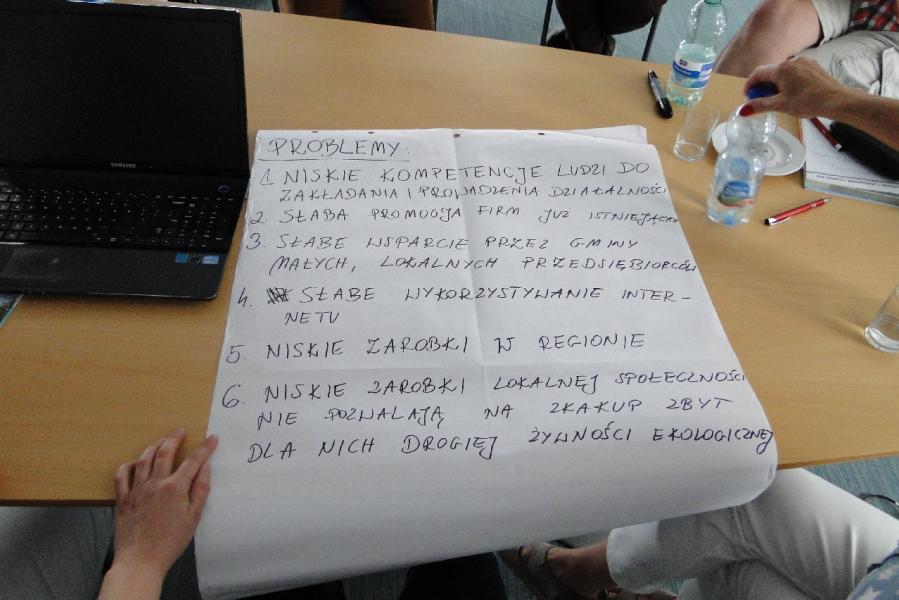 SAMSUNG
PROBLEMY:
1. NISKIE KOMPETENCJE LUDZI DO
ZAKŁADANIA I PROWADZENIA DZIAŁALNOŚCI
2. SŁABA PROMOCJA FIRM JUŻ ISTNIEJĄCYCH
3. SŁABE WSPARCIE PRZEZ GMINY
MAŁYCH, LOKALNYCH PRZEDSIĘBIORCÓW
4. SŁABE WYKORZYSTYWANIE INTER-
NETU
5. NISKIE ZAROBKI W REGIONIE
6. NISKIE ZAROBKI LOKALNEJ SPOŁECZNOŚCI
NIE POZWALAJĄ NA ZKAKUP ZBYT
DLA NICH DROGIEJ ŻYWNOŚCI EKOLOGICZNEJ